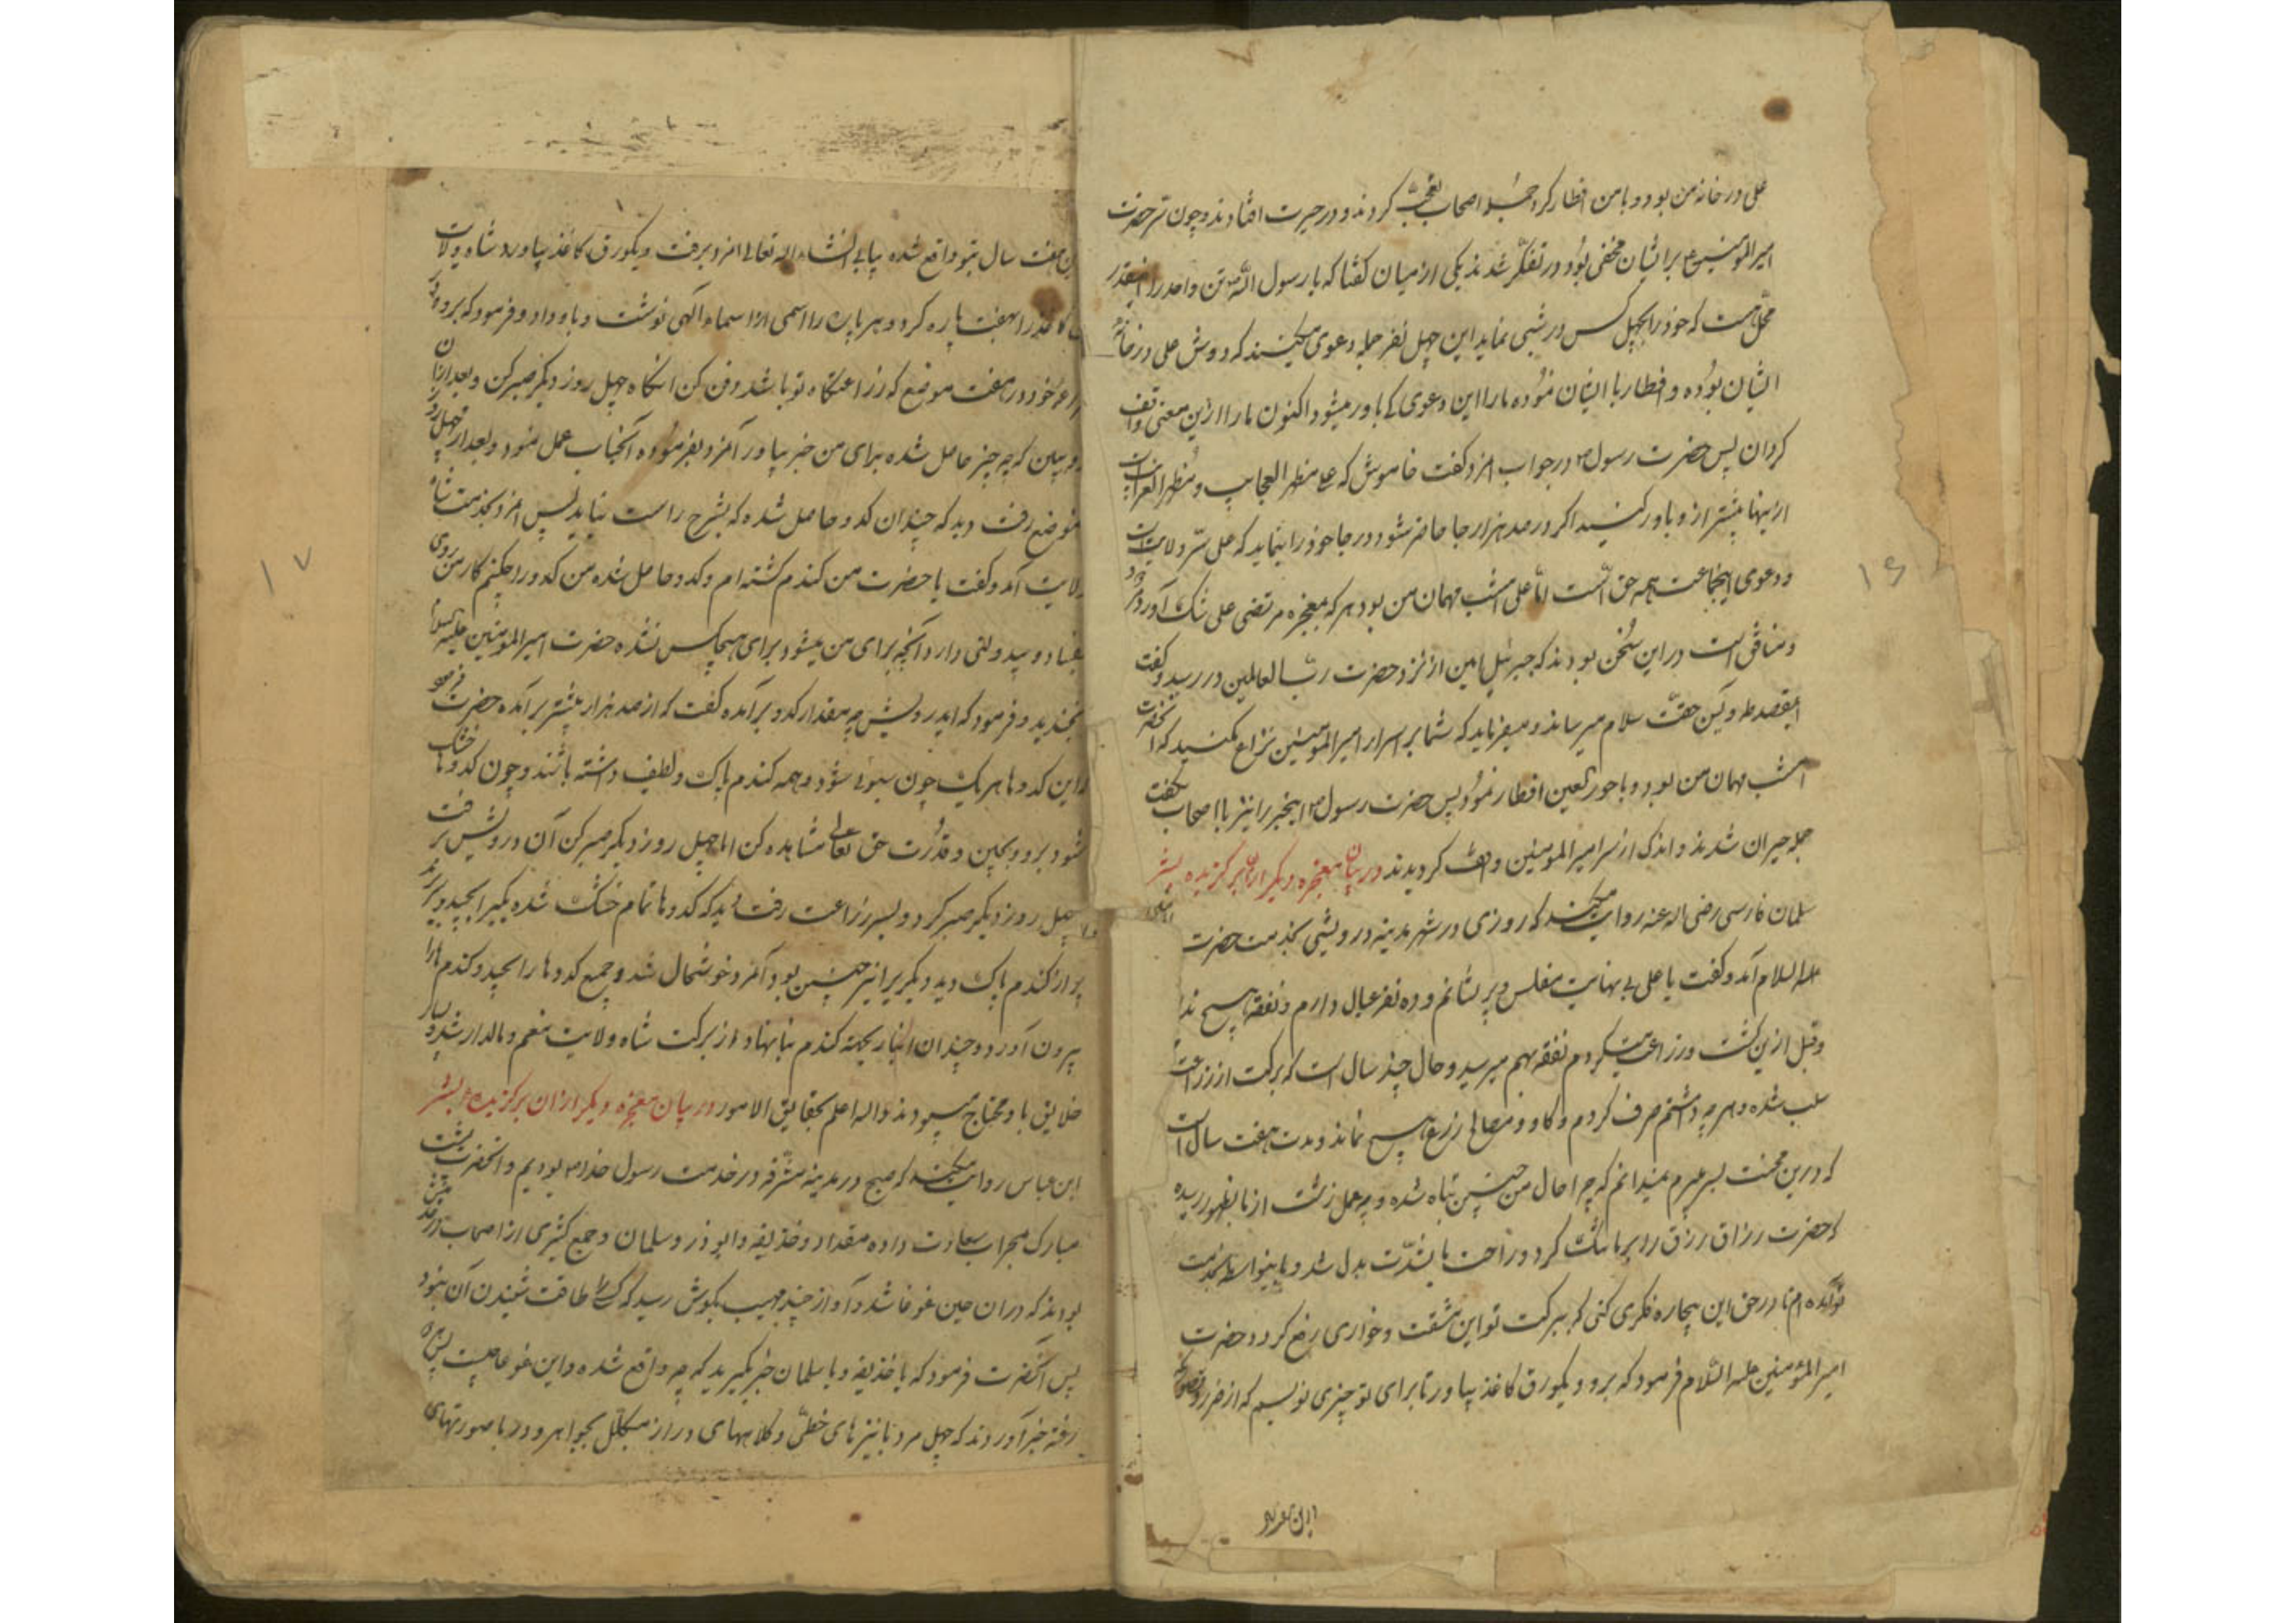 علی در خانه من بود و با من افطار کرد جمله اصحاب تعجب کردند و در حیرت افتادند و چون سر حضرت
امیرالمومنین بر ایشان مخفی بود در تفکر شدند یکی از میان گفتا که یا رسول الله تن واحد را اینقدر
محل هست که خود را بچهل کس در شبی نماید این چهل نفر جمله دعوی میکنند که دوش علی در خانه
ایشان بوده و افطار با ایشان نموده ما را این دعوی کی باور میشود اکنون ما را ازین معنی واقف
کردان پس حضرت رسول در جواب امرد گفت خاموش که علی مظهر العجایب و مظهر الغرایب است
ازینها بیشتر ازو باور کنید اگر در صد هزار جا حاضر شود و در جا خود را بنماید که علی سر ولایت است
و دعوی اینجماعت همه حق است اما علی امشب مهمان من بود هر که بمعجزه مرتضی علی شک آورد
و منافق است در این سخن بودند که جبرئیل امین از نزد حضرت رب العالمین در رسید و گفت
حقت سلام میرساند و میفرماید که شما بر اسرار امیرالمومنین نزاع مکنید که آنحضرت
امشب مهمان من بود و با حور العین افطار نمود پس حضرت رسول اینخبر را نیز با اصحاب بگفت
جمله حیران شدند و اندک از سر امیرالمومنین واقف کردیدند در بیان معجزه دیگر از آن برگزیده بشر
سلمان فارسی رضی اله عنه روایت میکند که روزی در شهر مدینه درویشی بخدمت حضرت
علیه السلام آمد و گفت یا علی بی نهایت مفلس و پریشانم و ده نفر عیال دارم و نفقه هیچ ندا
و قبل ازین کشت و زراعت میکردم نفقه بهم میرسید و حال چند سال است که برکت از زراعت
سلب شده و هر چه داشتم صرف کردم و کاو و مصالح زرع هیچ نماند و مدت هفت سال است
که درین محنت بسر میبرم نمیدانم که چرا حال من چنین تباه شده و چه عمل زشت از ما بظهور رسیده
که حضرت رزاق رزق را بر ما تنگ کرد و راحت ما بشدت بدل شد و باینواسطه بخدمت
تو آمده ام تا در حق این بیچاره فکری کنی که ببرکت تو این مشقت و خواری رفع کردد حضرت
امیرالمؤمنین علیه السلام فرمود که برو و یکورق کاغذ بیاور تا برای تو چیزی نویسم که از ضرر و
۱۶
این هفت سال بتو واقع شده بیابی انشاء اله تعالی امرد برفت و یکورق کاغذ بیاورد شاه ولایت
کاغذ را بهفت پاره کرد و هر پاره را اسمی از اسماء الهی نوشت و باو داد و فرمود که برو
خود در هفت موضع که زراعتگاه تو باشد دفن کن آنگاه چهل روز دیگر صبر کن و بعد از آن
و ببین که چه چیز حاصل شده برای من خبر بیاور آمرد بفرموده آنجناب عمل نمود و بعد از چهل روز
موضع رفت دید که چندان کدو حاصل شده که بشرح راست نیاید پس امرد بخدمت شاه
ولایت آمد و گفت یا حضرت من کندم کشته ام و کدو حاصل شده من کدو را چکنم کار من روی
بفساد و بیدولتی دارد آنچه برای من میشود برای هیچکس نشده حضرت امیرالمومنین علیه السلام
بخندید و فرمود که ایدرویش چه مقدار کدو برآمده گفت که از صد هزار بیشتر برآمده حضرت فرمود
که این کدوها هر یک چون سبوئی شود و همه کندم پاک و لطیف داشته باشند و چون کدوها خشک
شود برو و بچین و قدرت حق تعالی مشاهده کن اما چهل روز دیگر صبر کن آن درویش برفت
چهل روز دیگر صبر کرد و بسر زراعت رفت دید که کدوها تمام خشک شده یکیرا بچید و
پر از کندم پاک دید و دیگریرا نیز چنین بود آمرد خوشحال شد و جمیع کدوها را بچید و کندم ها را
بیرون آورد و چندان انبار بجهة کندم بنا نهاد و از برکت شاه ولایت منعم و مالدار شد و بسیار
خلایق باو محتاج میبودند و اله اعلم بحقایق الامور در بیان معجزه دیگر از ان برگزیده بشر
ابن عباس روایت میکند که صبح در مدینه مشرفه در خدمت رسول خدا بودیم و آنحضرت پشت
مبارک بمحراب سعادت داده مقداد و حذیفه و ابوذر و سلمان و جمع کثیری از اصحاب در خدمتش
بودند که در ان حین غوغا شد و آواز چند مهیب بکوش رسید که کسی را طاقت شنیدن آن نبود
پس آنحضرت فرمود که یا حذیفه و یا سلمان خبر بگیرید که چه واقع شده و این غوغا چیست
رفته خبر آوردند که چهل مرد با نیزه های خطی و کلاههای دراز مکلل بجواهر و در با صورتهای
۱۷